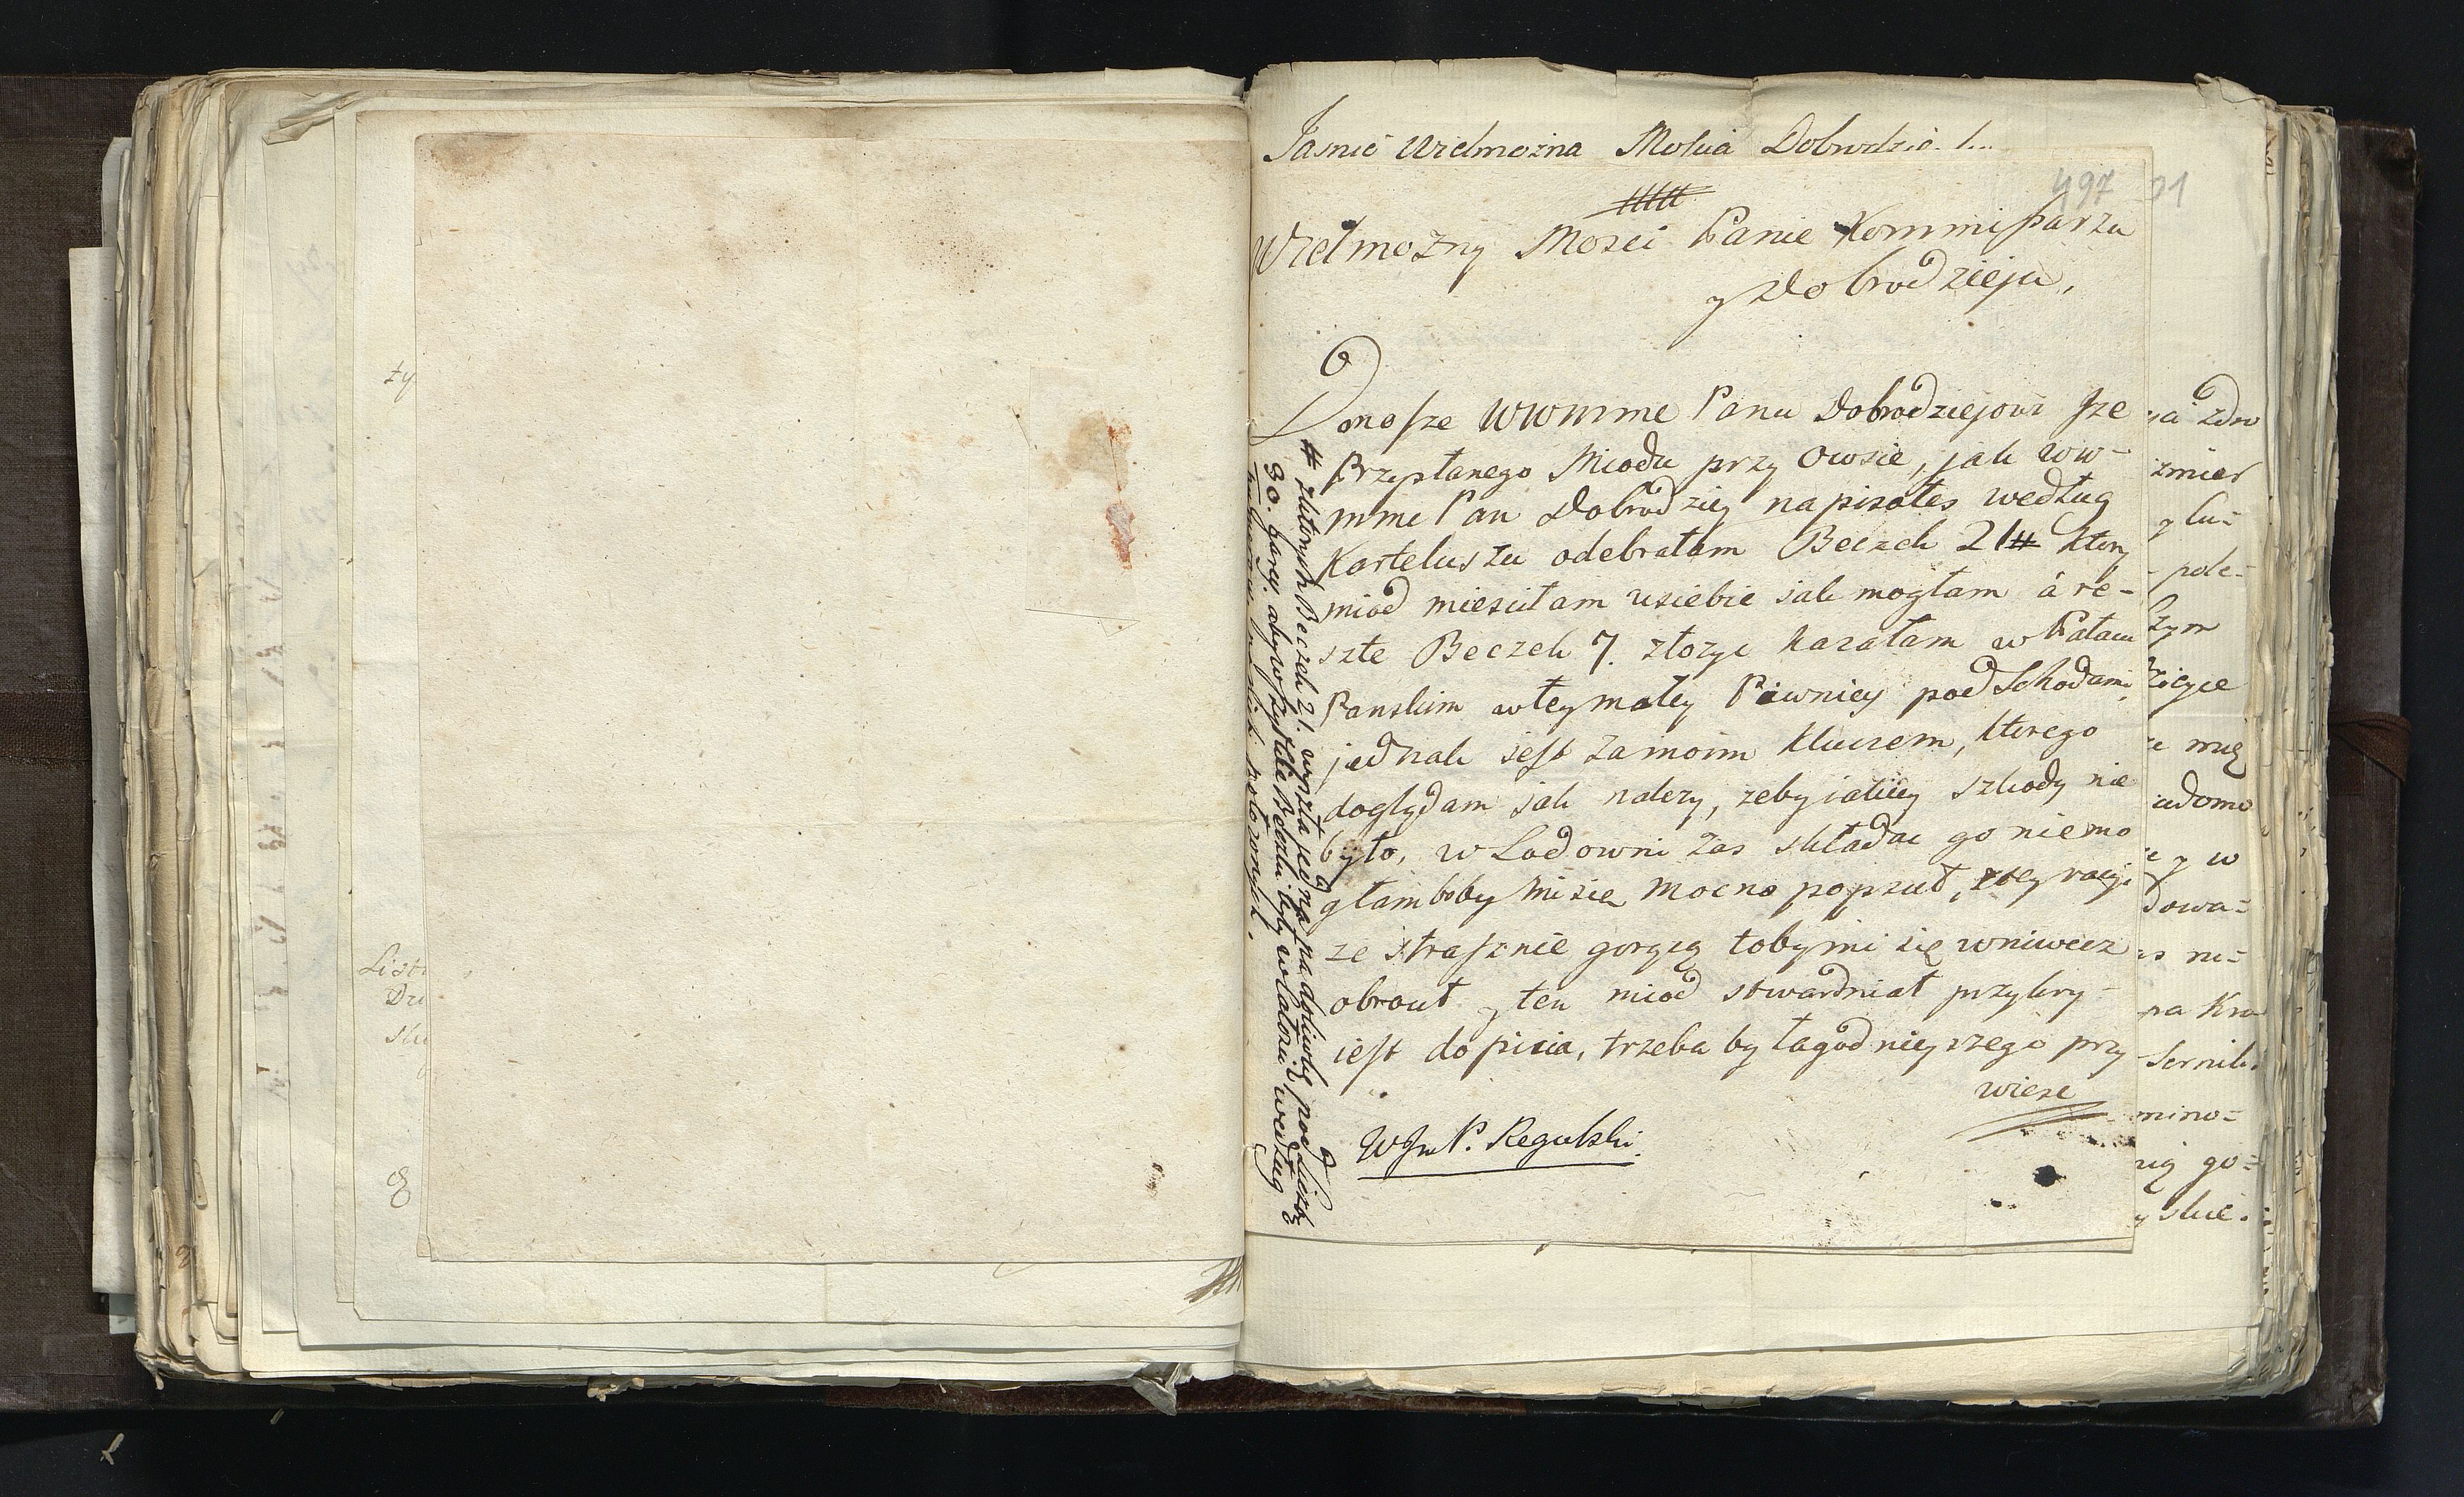 Jasnie Wielmozna Mośćia Dobrodzie
497
91
Wielmozny Mosci Panie Kommissarzu
y Dobrodzieju,
Donosze WWmme Panu Dobrodziejowi sze
Przysłanego Miodu przy Owsie, jak ww-
mme Pan Dobrodziey napisałes według
Karteluszu odebrałam Beczek 21 # ktory
miod miesciłam u siebie jak mogłam á re-
szte Beczek 7. złozyc kazałam w Pałacu
Panskim w tey małey Piwnicy pod Schodami,
jednak jest za moim kluczem, ktorego
doglądam jak nalezy, zeby iakiey szkody nie
było, w Lodowni zas składac go niemo
głam boby mi się mocno popsuł, z tey racyi
ze strasznie gorący toby mi się wniwecz
obrocił y ten miod stwardniał przykry
iest do picia, trzeba by łagodnieyszego przy
wiesc
WJm P. Regulski.
# z ktorych Beczek 21. wyszła jedna na dolewkę, pod liczbą
30. garcy. aby wszystkie Beczki były
połozonych.
ty
Listo
Dzi
ya zdro
zmier
y lu=
pole=
szym
rzicycie
ze mię
iadomo
y w
dowa=
as ni=
na Kra
Sernik
mino=
nią go=
y skie.